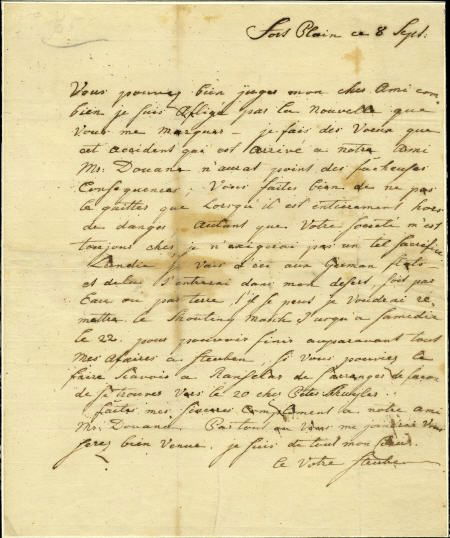 Fort Plain ce 8 Sept:
Vous pouvez bien juger mon cher Ami com
bien je suis afligé par la nouvelle que
Vous me marquez – je fais des Vœux que
cet accident qui est arrivé a notre Ami
Mr. Douane n'aurat point des facheuses
Consequences; Vous faites bien de ne pas
le quitter que Lorsqu'il est entierement hors
de danger autant que Votre Societé m'est
toujours cher, je n'exigerai pas un tel sacrifice
Lundie je vais d'ici aux German flats
et de la j'entrerai dans mon desert, soit par
Eau ou par terre, s'il se peut je voudrai re
mettre le Shouting Match Jusqu'a samedie
le 22. pour pouvoir finir auparavant tout
Mes afaires a Steuben, si vous pouviez le
faire scavoir a Ranselar de s'arranger de facon
de se trouver vers le 20 chez Peter
faites mes sinceres compliment a notre ami
Mr: Douane. Partout ou Vous me joindrez Vous
serez bien venue, je suis de tout mon cœur
le Votre Steuben